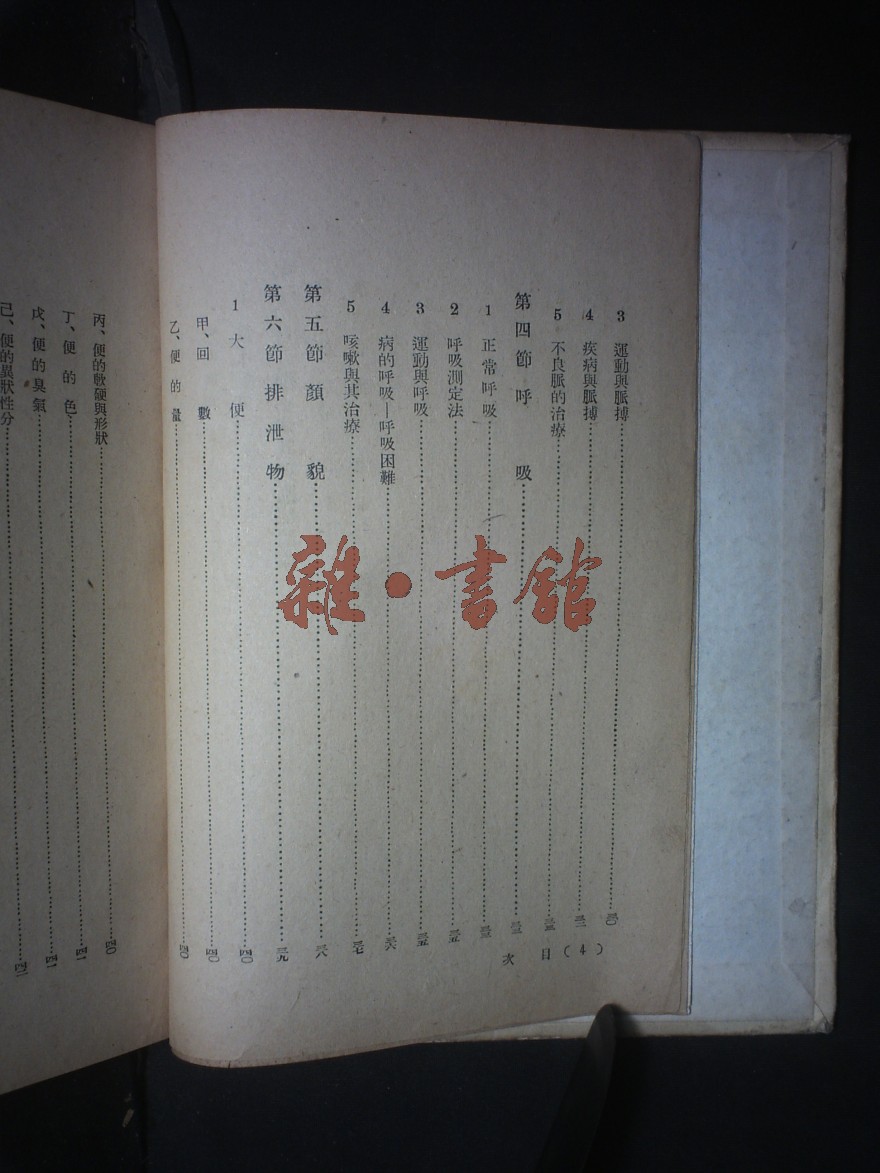 3 運動與脈搏
4 疾病與脈搏
5 不良脈的治療
第四節 呼吸
1 正常呼吸
2 呼吸測定法
3 運動與呼吸
4 病的呼吸—呼吸困難
5 咳嗽與其治療
第五節 顏貌
第六節 排泄物
1 大便 四〇
甲、回數 四〇
乙、便的量 四〇
目次 (4)
丙、便的軟硬與形狀 四〇
丁、便的色 四一
戊、便的臭氣 四一
己、便的異狀性分
雜·書館